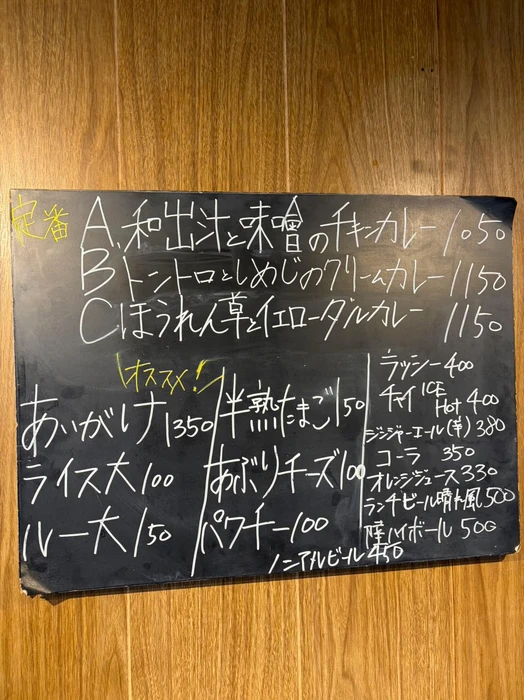 定番
A.和出汁と味噌のチキンカレー 1050
Bトントロとしめじのクリームカレー 1150
Cほうれん草とイエローダルカレー 1150
オススメ!
あいがけ 1350
ライス大 100
ルー大 150
半熟たまご 150
あぶりチーズ 100
パクチー 100
ノンアルビール 450
ラッシー 400
チャイ ICE Hot 400
ジンジャーエール(辛) 380
コーラ 350
オレンジジュース 330
ランチビール晴れ風 500
ハイボール 500